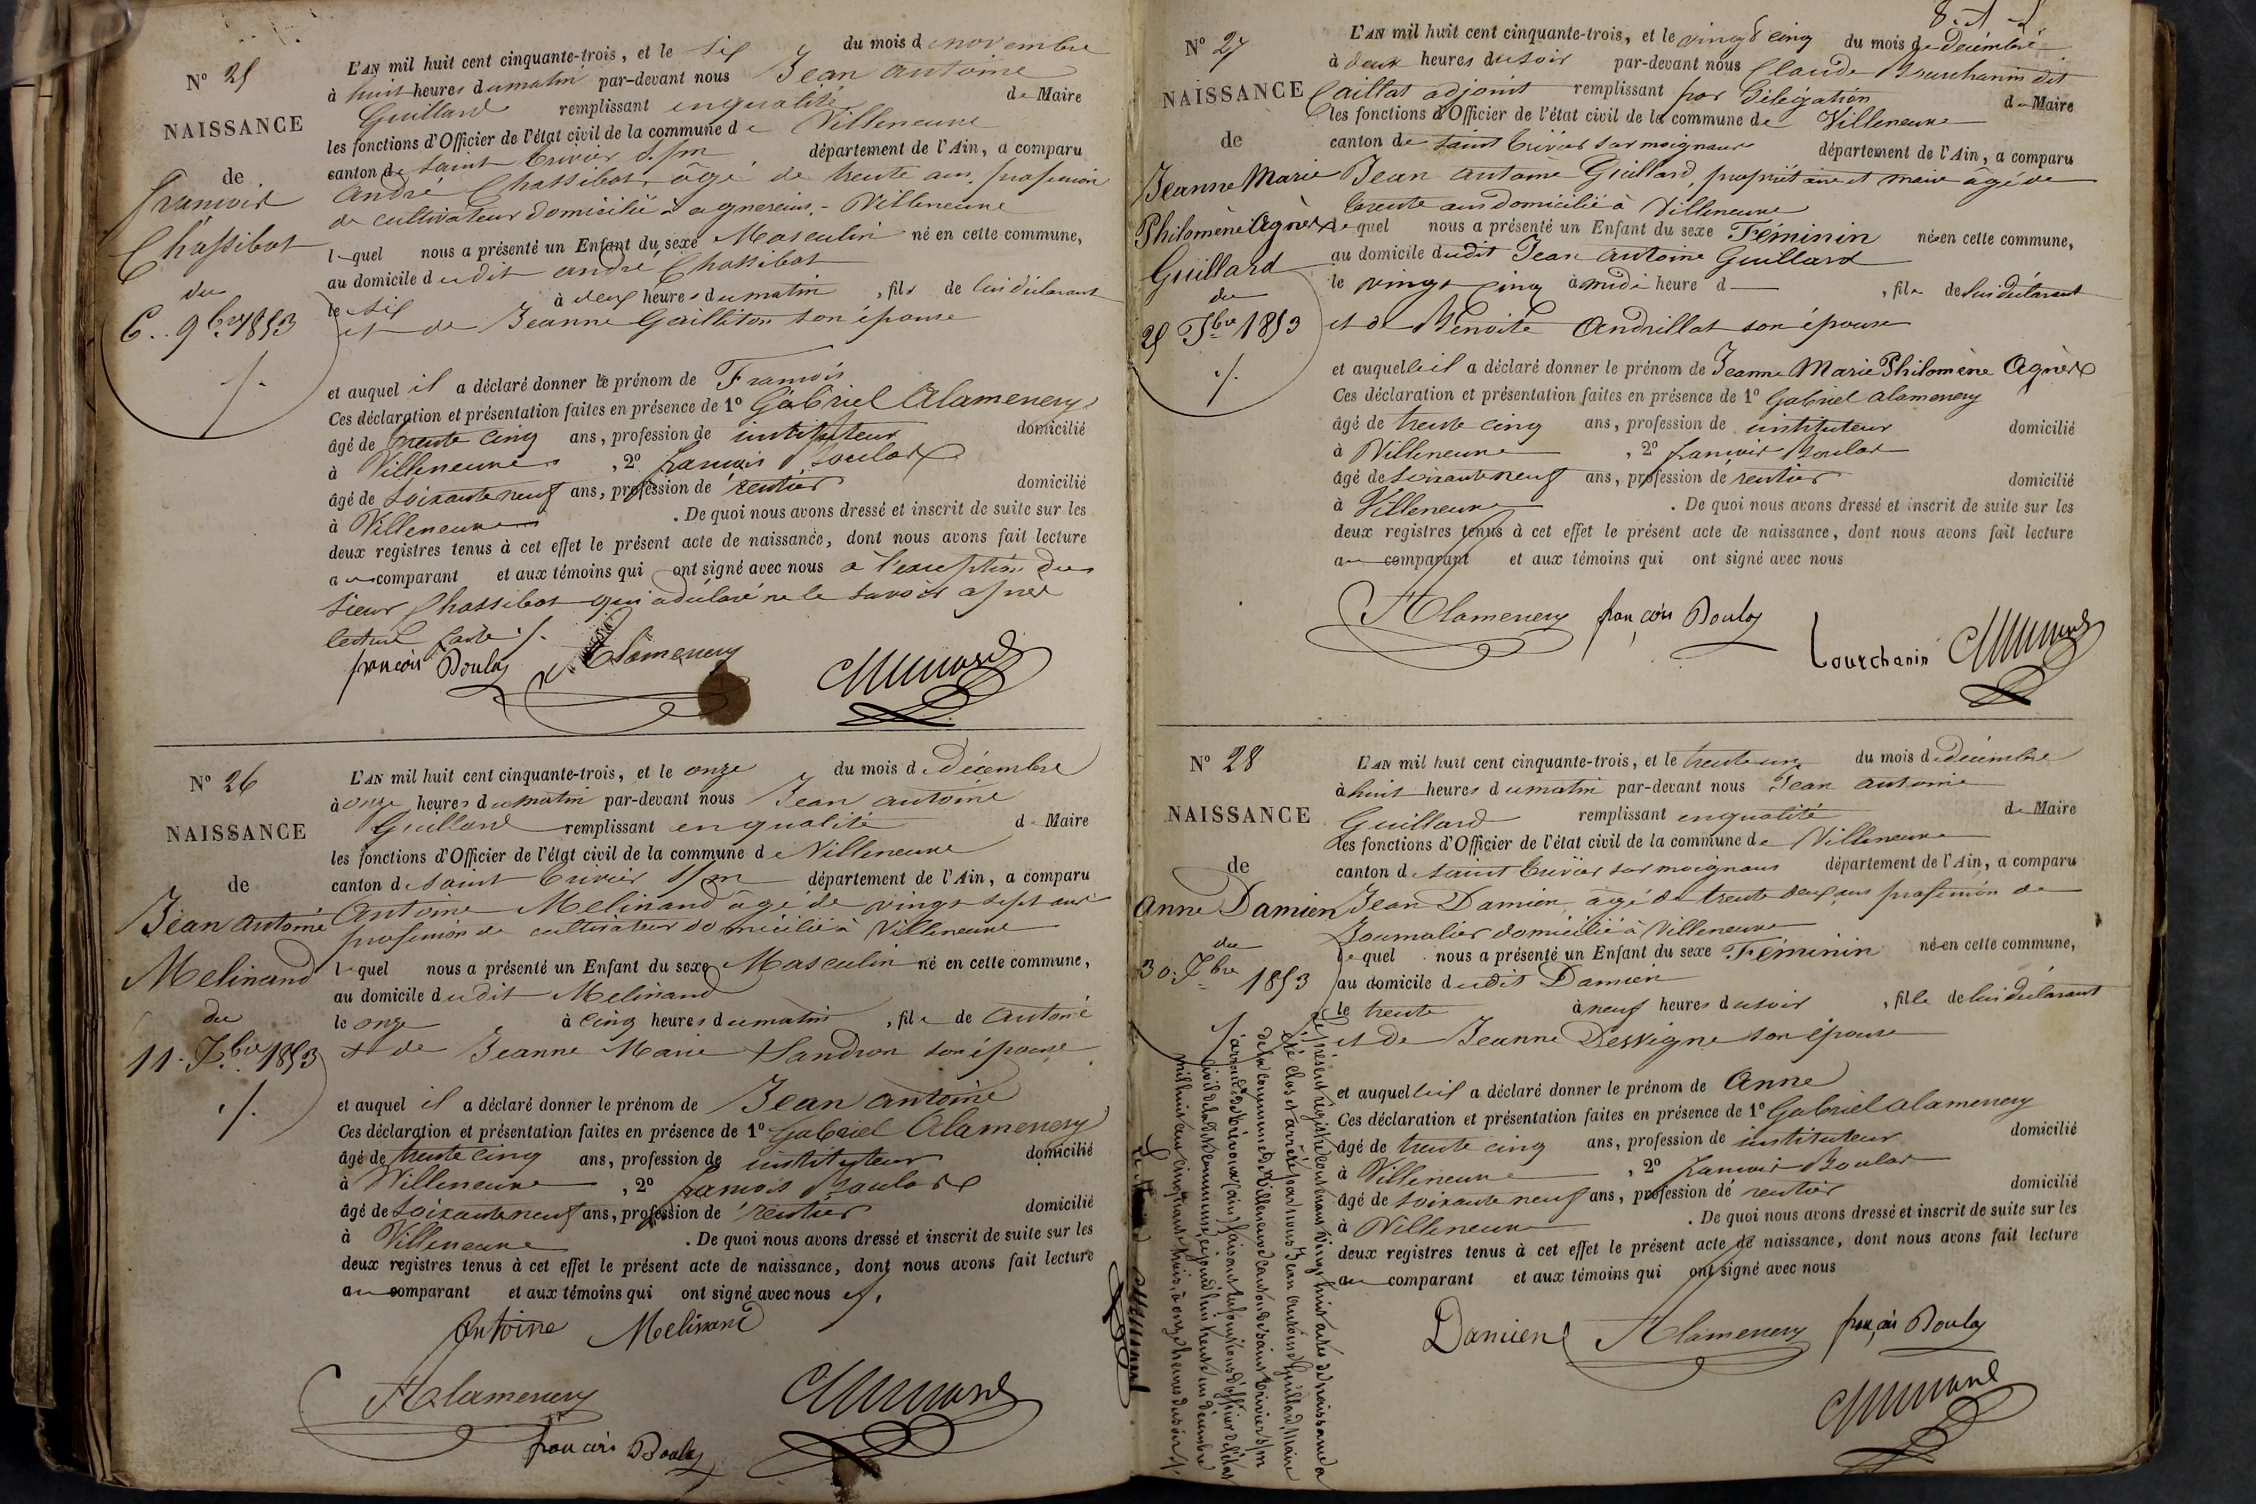 N° 25
NAISSANCE
de
François
Chassibot
du
6. 9bre 1853
L'AN mil huit cent cinquante-trois, et le six du mois de novembre
à huit heures du matin par-devant nous Jean Antoine
Guillard remplissant en qualité de Maire
les fonctions d'Officier de l'état civil de la commune de Villeneuve
canton de saint Trivier s/m département de l'Ain, a comparu
André Chassibot, âgé de trente ans, profession
de cultivateur domicilié à agnereins - Villeneuve
lequel nous a présenté un Enfant du sexe Masculin né en cette commune,
au domicile dudit andré Chassibot
le six à deux heures du matin, fils de lui déclarant
et de Jeanne Gailliton son épouse
et auquel il a déclaré donner le prénom de François
Ces déclaration et présentation faites en présence de 1° Gabriel Alamenery
âgé de trente cinq ans, profession de instituteur domicilié
à Villeneuve, 2° françois Boulas
âgé de soixante neuf ans, profession de rentier domicilié
à Villeneuve. De quoi nous avons dressé et inscrit de suite sur les
deux registres tenus à cet effet le présent acte de naissance, dont nous avons fait lecture
au comparant et aux témoins qui ont signé avec nous à l'exception du
sieur Chassibot qui a déclaré ne le savoir après
lecture faite ./.
françois Boulas Alamenery
N° 26
NAISSANCE
de
Jean Antoine
Melinand
du
11. Xbre 1853
./.
L'AN mil huit cent cinquante-trois, et le onze du mois de Décembre
à onze heures du matin par-devant nous Jean antoine
Guillard remplissant en qualité de Maire
les fonctions d'Officier de l'état civil de la commune de Villeneuve
canton de saint Trivier s/m département de l'Ain, a comparu
Antoine Melinand âgé de vingt sept ans
profession de cultivateur domicilié à Villeneuve
lequel nous a présenté un Enfant du sexe Masculin né en cette commune,
au domicile dudit Melinand
le onze à cinq heures du matin, fils de Antoine
et de Jeanne Marie Sandron son épouse
et auquel il a déclaré donner le prénom de Jean antoine
Ces déclaration et présentation faites en présence de 1° Gabriel Alamenery
âgé de trente cinq ans, profession de instituteur domicilié
à Villeneuve, 2° françois Boulas
âgé de soixante neuf ans, profession de rentier domicilié
à Villeneuve. De quoi nous avons dressé et inscrit de suite sur les
deux registres tenus à cet effet le présent acte de naissance, dont nous avons fait lecture
au comparant et aux témoins qui ont signé avec nous ./.
Antoine Melinand
Alamenery
françois Boulas
N° 27
NAISSANCE
de
Jeanne Marie
Philomène Agnès
Guillard
du
25 Xbre 1853
./.
L'AN mil huit cent cinquante-trois, et le vingt cinq du mois de Décembre
à deux heures du soir par-devant nous Claude Bourchanin dit
Caillat adjoint remplissant par Délégation de Maire
les fonctions d'Officier de l'état civil de la commune de Villeneuve
canton de saint Trivier sur moignans département de l'Ain, a comparu
Jean antoine Guillard, propriétaire et maire âgé de
trente ans domicilié à Villeneuve
lequel nous a présenté un Enfant du sexe Féminin née en cette commune,
au domicile dudit Jean antoine Guillard
le vingt cinq à midi heure d, fille de lui déclarant
et de Benoite Andrillat son épouse
et auquelle il a déclaré donner le prénom de Jeanne Marie Philomène Agnès
Ces déclaration et présentation faites en présence de 1° Gabriel alamenery
âgé de trente cinq ans, profession de instituteur domicilié
à Villeneuve, 2° françois Boulas
âgé de soixante neuf ans, profession de rentier domicilié
à Villeneuve. De quoi nous avons dressé et inscrit de suite sur les
deux registres tenus à cet effet le présent acte de naissance, dont nous avons fait lecture
au comparant et aux témoins qui ont signé avec nous
Alamenery françois Boulas
Bourchanin
N° 28
NAISSANCE
de
Anne Damien
du
30. Xbre 1853
./.
L'AN mil huit cent cinquante-trois, et le trente un du mois de décembre
à huit heures du matin par-devant nous Jean antoine
Guillard remplissant en qualité de Maire
les fonctions d'Officier de l'état civil de la commune de Villeneuve
canton de saint Trivier sur moignans département de l'Ain, a comparu
Jean Damien, âgé de trente deux ans profession de
Journalier domicilié à Villeneuve
lequel nous a présenté un Enfant du sexe Féminin née en cette commune,
au domicile dudit Damien
le trente à neuf heures du soir, fille de lui déclarant
et de Jeanne Dessigne son épouse
et auquelle il a déclaré donner le prénom de Anne
Ces déclaration et présentation faites en présence de 1° Gabriel alamenery
âgé de trente cinq ans, profession de instituteur domicilié
à Villeneuve, 2° françois Boulas
âgé de soixante neuf ans, profession de rentier domicilié
à Villeneuve. De quoi nous avons dressé et inscrit de suite sur les
deux registres tenus à cet effet le présent acte de naissance, dont nous avons fait lecture
au comparant et aux témoins qui ont signé avec nous
Damien Alamenery françois Boulas
Le présent registre contenant vingt huit actes de naissance a
été clos et arrêté par nous Jean Antoine Guillard, Maire
de la commune de Villeneuve canton de saint Trivier s/m
arrond. de Trévoux (ain) faisant les fonctions d'officier de l'état
civil de la commune, ajourd'hui trente un décembre
mil huit cent cinquante trois, à onze heures du soir ./.
Le Maire